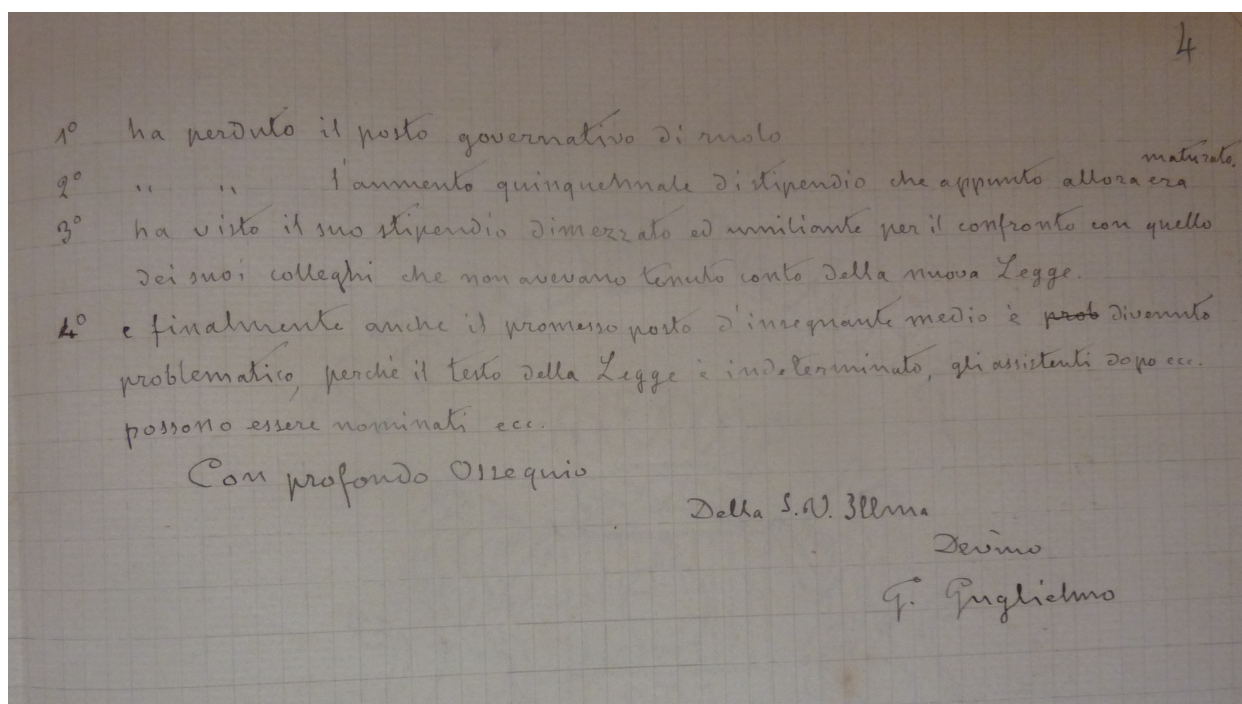 4
1° ha perduto il posto governativo di ruolo
maturato.
2° " " l'aumento quinquennale di stipendio che appunto allora era
3° ha visto il suo stipendio dimezzato ed umiliante per il confronto con quello
dei suoi colleghi che non avevano tenuto conto della nuova Legge.
4° e finalmente anche il promesso posto d'insegnante medio è prob divenuto
problematico, perché il testo della Legge è indeterminato, gli assistenti dopo ecc.
possono essere nominati ecc.
Con profondo Ossequio
Della S.V. Illma
Devmo
G. Guglielmo